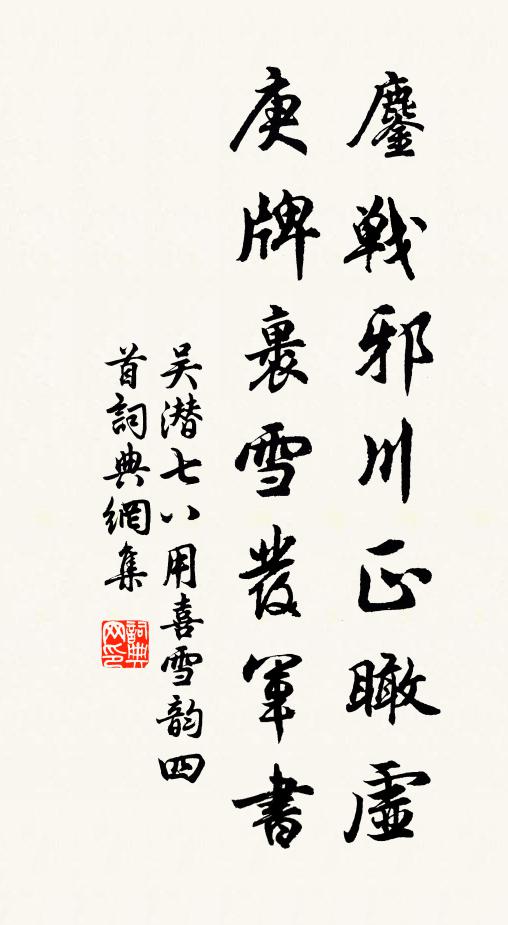 鏖戰邪川正瞰虛
庚牌裹雪發軍書
吴潜七八用喜雪韵四
首詞典網集
詞典网印